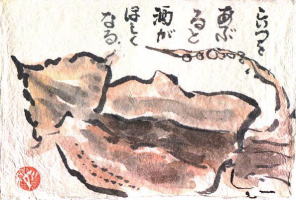 こいつを
あぶ
ると
酒が
ほしく
なる